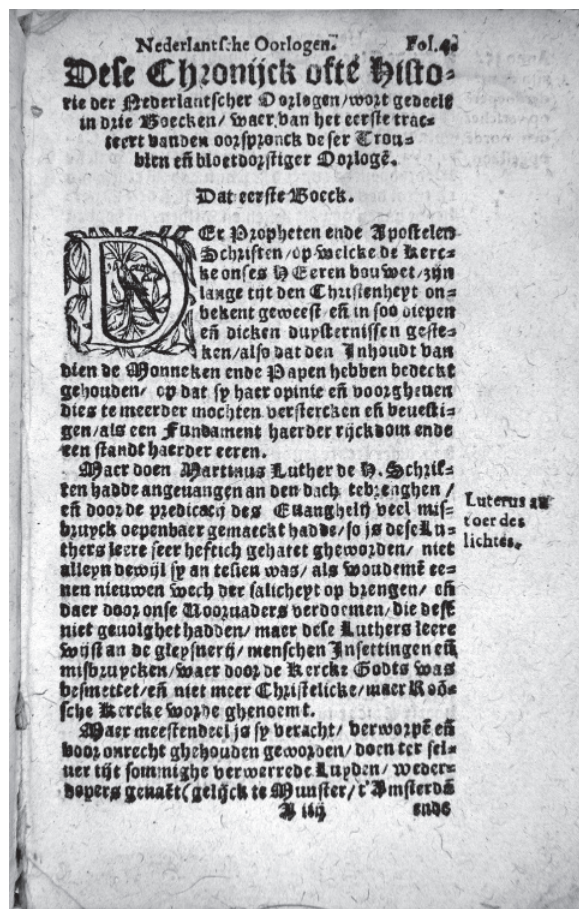 Nederlantsche Oorlogen. Fol.4.
Dese Chronijck ofte Histo-
rie der Nederlantscher Oorlogen/wort gedeelt
in drie Boecken/ waer van het eerste trac-
teert vanden oorspronck deser Trou-
blen eñ bloetdorstiger Oorlogē.
Dat eerste Boeck.
DEr Propheten ende Apostelen
Schriften/op welcke de Kerc-
ke onses HEeren bouwet/zijn
lange tijt den Christenheyt on-
bekent geweest/ eñ in soo diepen
eñ dicken duysternissen geste-
ken/also dat den Inhoudt van
dien de Monneken ende Papen hebben bedeckt
gehouden/ op dat sy haer opinie eñ voorgheven
dies te meerder mochten verstercken eñ bevesti-
gen/als een Fundament haerder rijckdom ende
een standt haerder eeren.
Maer doen Martinus Luther de H. Schrif-
ten hadde angevangen an den dach tebrenghen /
eñ door de predicacij des Euanghelij veel mis-
bruyck oepenbaer gemaeckt hadde/so is dese Lu-
thers leere seer heftich gehatet gheworden/ niet
alleyn dewijl sy an tesien was/ als woudemē ee-
nen nieuwen wech der salicheyt op brengen/ eñ
daer door onse Voorvaders verdoemen/die desē
niet gevolghet hadden/ maer dese Luthers leere
wijst an de gleysnerij/ menschen Insettingen eñ
misbruycken/waer door de Kercke Godts was
besmettet/eñ niet meer Christelicke/maer Roō-
sche Kercke worde ghenoemt.
Maer meestendeel is sy veracht/ verworpē eñ
voor onrecht ghehouden geworden/ doen ter sel-
ver tijt sommighe verwerrede Luyden/ weder-
dopers genaēt(gelijck te Munster/t'Amsterdā
A iiij ende
Luterus au
toer des
lichtes.